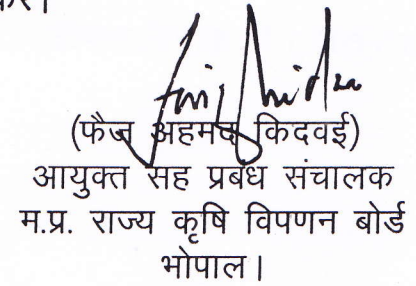 (फैज अहमद किदवई)
आयुक्त सह प्रबंध संचालक
म.प्र. राज्य कृषि विपणन बोर्ड
भोपाल।